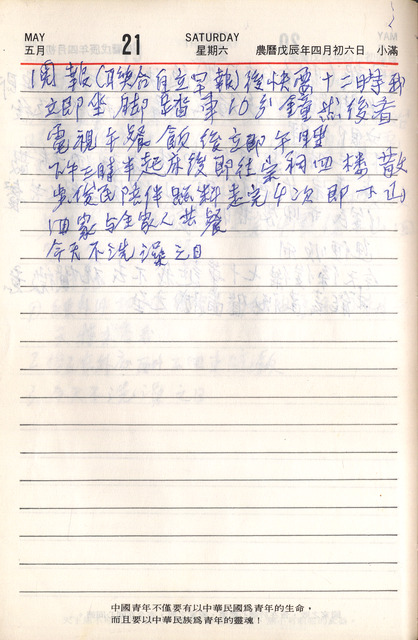 MAY
五月
21
SATURDAY
星期六
農曆戊辰年四月初六日
小滿
閱報(聯合自立早報)後快要十二時我
立即坐脚踏車10分鐘然後看
電視午餐飯後立即午睡
下午三時半起床後即往宗祠四樓散
步俊民陪伴 走完4次即下山
回家与全家人共餐
今天不洗澡之日
中國青年不僅要有以中華民國爲青年的生命,
而且要以中華民族爲青年的靈魂!